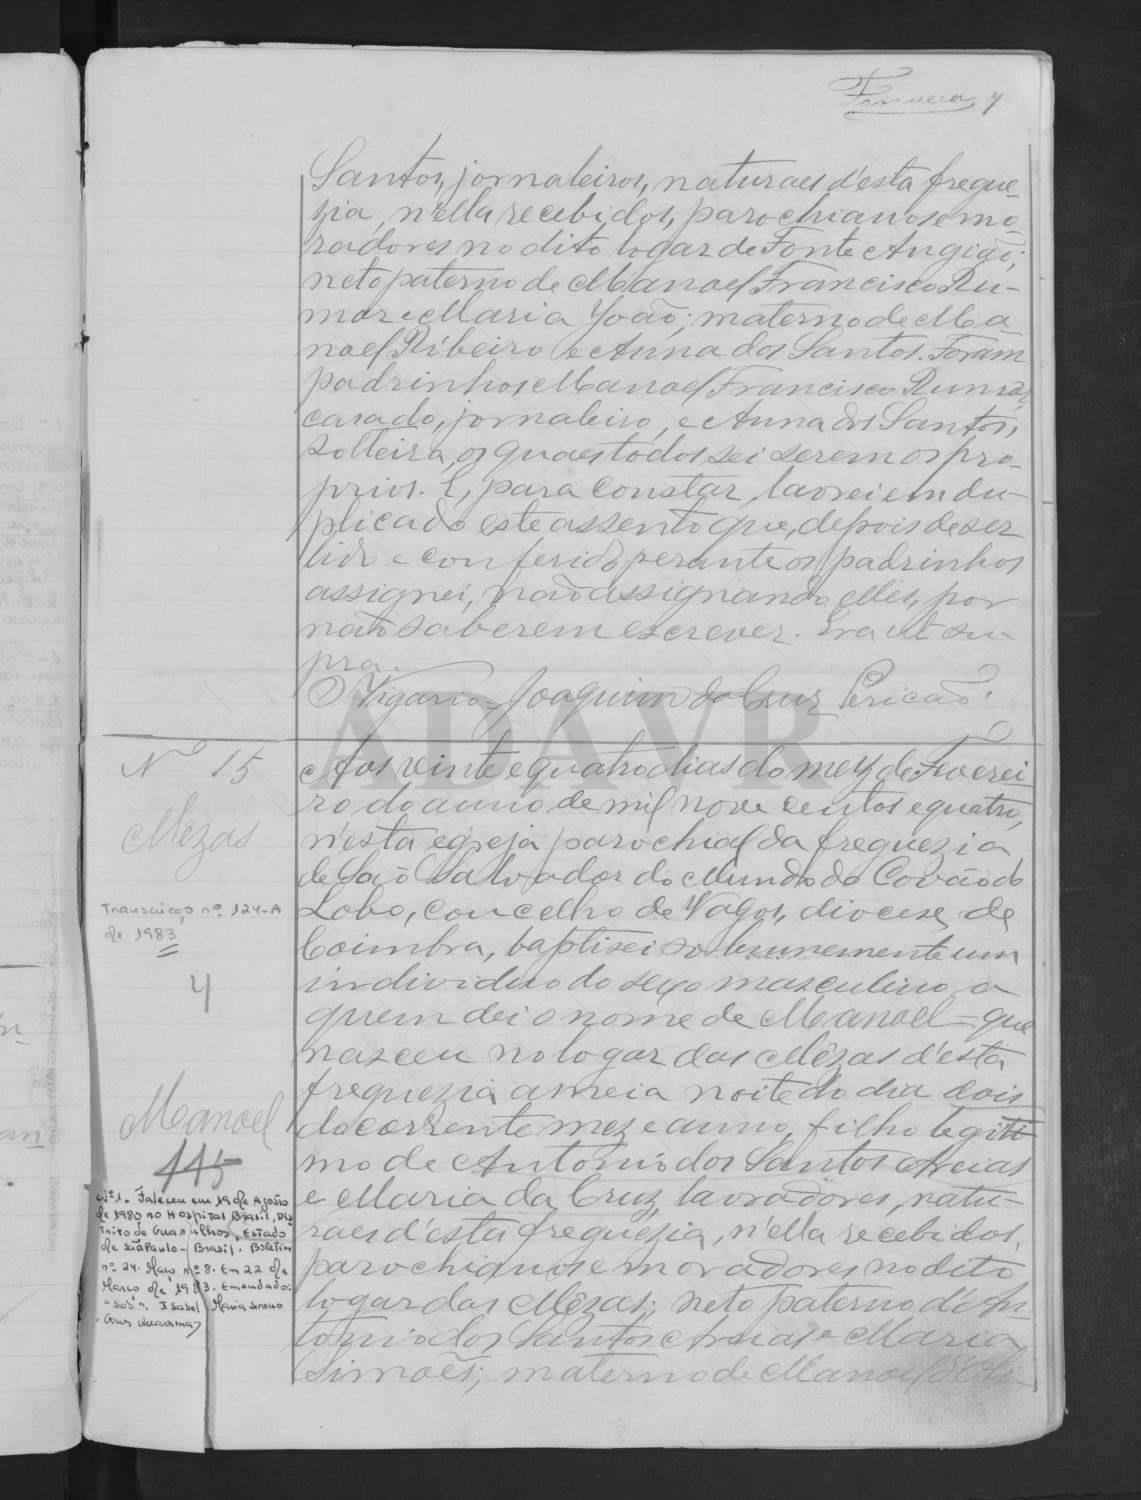 Fonseca 7
Santos, jornaleiros, naturaes d'esta fregue-
zia, n'ella recebidos, parochianos e mo-
radores no dito logar de Fonte Angião;
neto paterno de Manoel Francisco Ru-
mor e Maria João; materno de Ma-
noel Ribeiro e Anna dos Santos. Foram
padrinhos Manoel Francisco Rumor,
casado, jornaleiro, e Anna dos Santos,
solteira, os quaes todos sei serem os pro-
prios. E, para constar, lavrei em du-
plicado este assento que, depois de ser
lido e conferido perante os padrinhos
assignei, não assignando elles, por
não saberem escrever. Era ut su-
pra.
O Vigario = Joaquim da Cruz Pericão.
Nº 15
Mezas
Transcriço nº 124-A
de 1983
4
Manoel
115
Nº 1 - Faleceu em 19 de Agosto
de 1980 no Hospital Brasil, Dis-
trito de Guarulhos, Estado
de São Paulo - Brasil. Boletim
nº 24. Maço nº 8. Em 22 de
Março de 1983. Emendado:
"Isabel Maria
Aos vinte e quatro dias do mez de Feverei-
ro do anno de mil nove centos e quatro,
n'esta egreja parochial da freguezia
de São Salvador do Mundo do Covão do
Lobo, concelho de Vagos, diocese de
Coimbra, baptisei solemnemente um
individuo do sexo masculino a
quem dei o nome de Manoel = que
nasceu no logar das Mêzas d'esta
freguezia a meia noite do dia dois
do corrente mez e anno, filho legiti-
mo de Antonio dos Santos Areias
e Maria da Cruz, lavradores, natu-
raes d'esta freguezia, n'ella recebidos,
parochianos e moradores no dito
logar das Mêzas; neto paterno d'An-
tonio dos Santos Areias e Maria
Simões; materno de Manoel